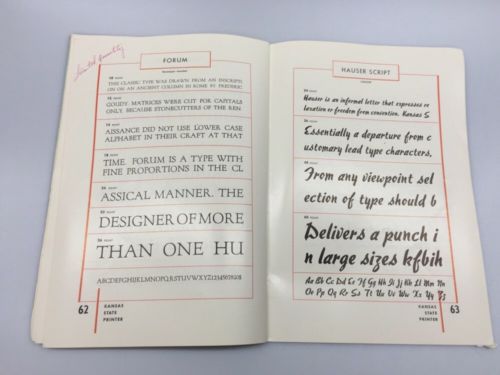 Limited Quantity
FORUM
10 POINT
THIS CLASSIC TYPE WAS DRAWN FROM AN INSCRIPTI
ON ON AN ANCIENT COLUMN IN ROME BY FREDERIC
12 POINT
GOUDY. MATRICES WERE CUT FOR CAPITALS
ONLY, BECAUSE STONECUTTERS OF THE REN
14 POINT
AISSANCE DID NOT USE LOWER CASE
ALPHABET IN THEIR CRAFT AT THAT
18 POINT
TIME. FORUM IS A TYPE WITH
FINE PROPORTIONS IN THE CL
24 POINT
ASSICAL MANNER. THE
30 POINT
DESIGNER OF MORE
36 POINT
THAN ONE HU
ABCDEFGHIJKLMNOPQRSTUVWXYZ1234567890$
62
KANSAS
STATE
PRINTER
HAUSER SCRIPT
24 POINT
Hauser is an informal letter that expresses re
laxation or freedom from convention. Kansas S
30 POINT
Essentially a departure from c
ustomary lead type characters.
36 POINT
From any viewpoint sel
ection of type should b
POINT
Delivers a punch i
n large sizes kfbih
Aa Bb Cc Dd Ee Ff Gg Hh Ii Jj Kk Ll Mm Nn
Oo Pp Qq Rr Ss Tt Uu Vv Ww Xx Yy Zz
KANSAS
STATE
PRINTER
63